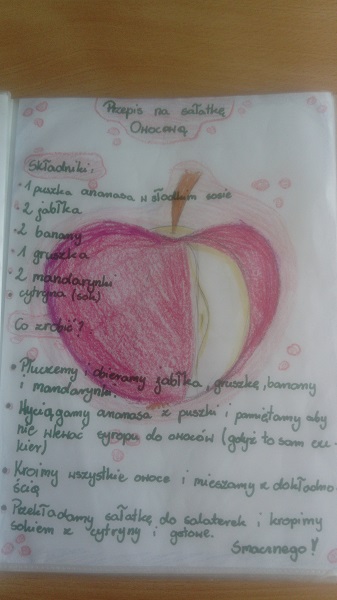 Przepis na sałatkę
Owocową
Składniki:
• 1 puszka ananasa w słodkim sosie
• 2 jabłka
• 2 banany
• 1 gruszka
• 2 mandarynki
• cytryna (sok)
Co zrobić?
• Płuczemy i obieramy jabłka, gruszkę, banany
i mandarynki.
• Wyciągamy ananasa z puszki i pamiętamy aby
nie wlewać syropu do owoców (gdyż to sam cu-
kier)
• Kroimy wszystkie owoce i mieszamy z dokładno-
ścią
• Przekładamy sałatkę do salaterek i kropimy
sokiem z cytryny i gotowe.
Smacznego!